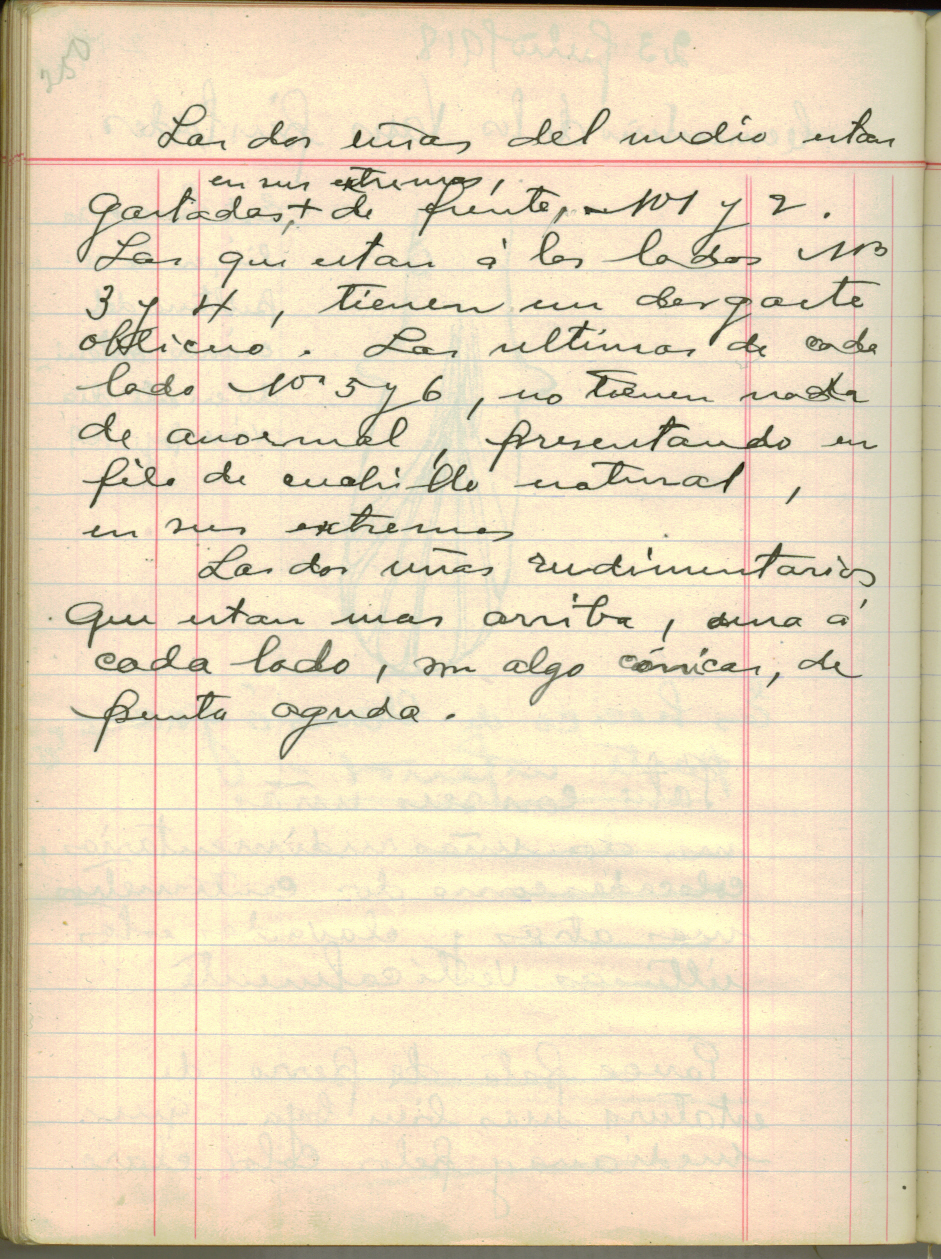 Las dos uñas del medio estan
en sus extremos,
gastadas, + de frente, Nos 1 y 2.
Las que estan á los lados Nos
3 y 4, tienen un desgaste
oblicuo. Las ultimas de cada
lado Nos 5 y 6, no tienen nada
de anormal, presentando en
filo de cuchillo natural,
en sus extremos
Las dos uñas rudimentarias
que estan mas arriba, una á
cada lado, son algo cónicas, de
punta aguda.